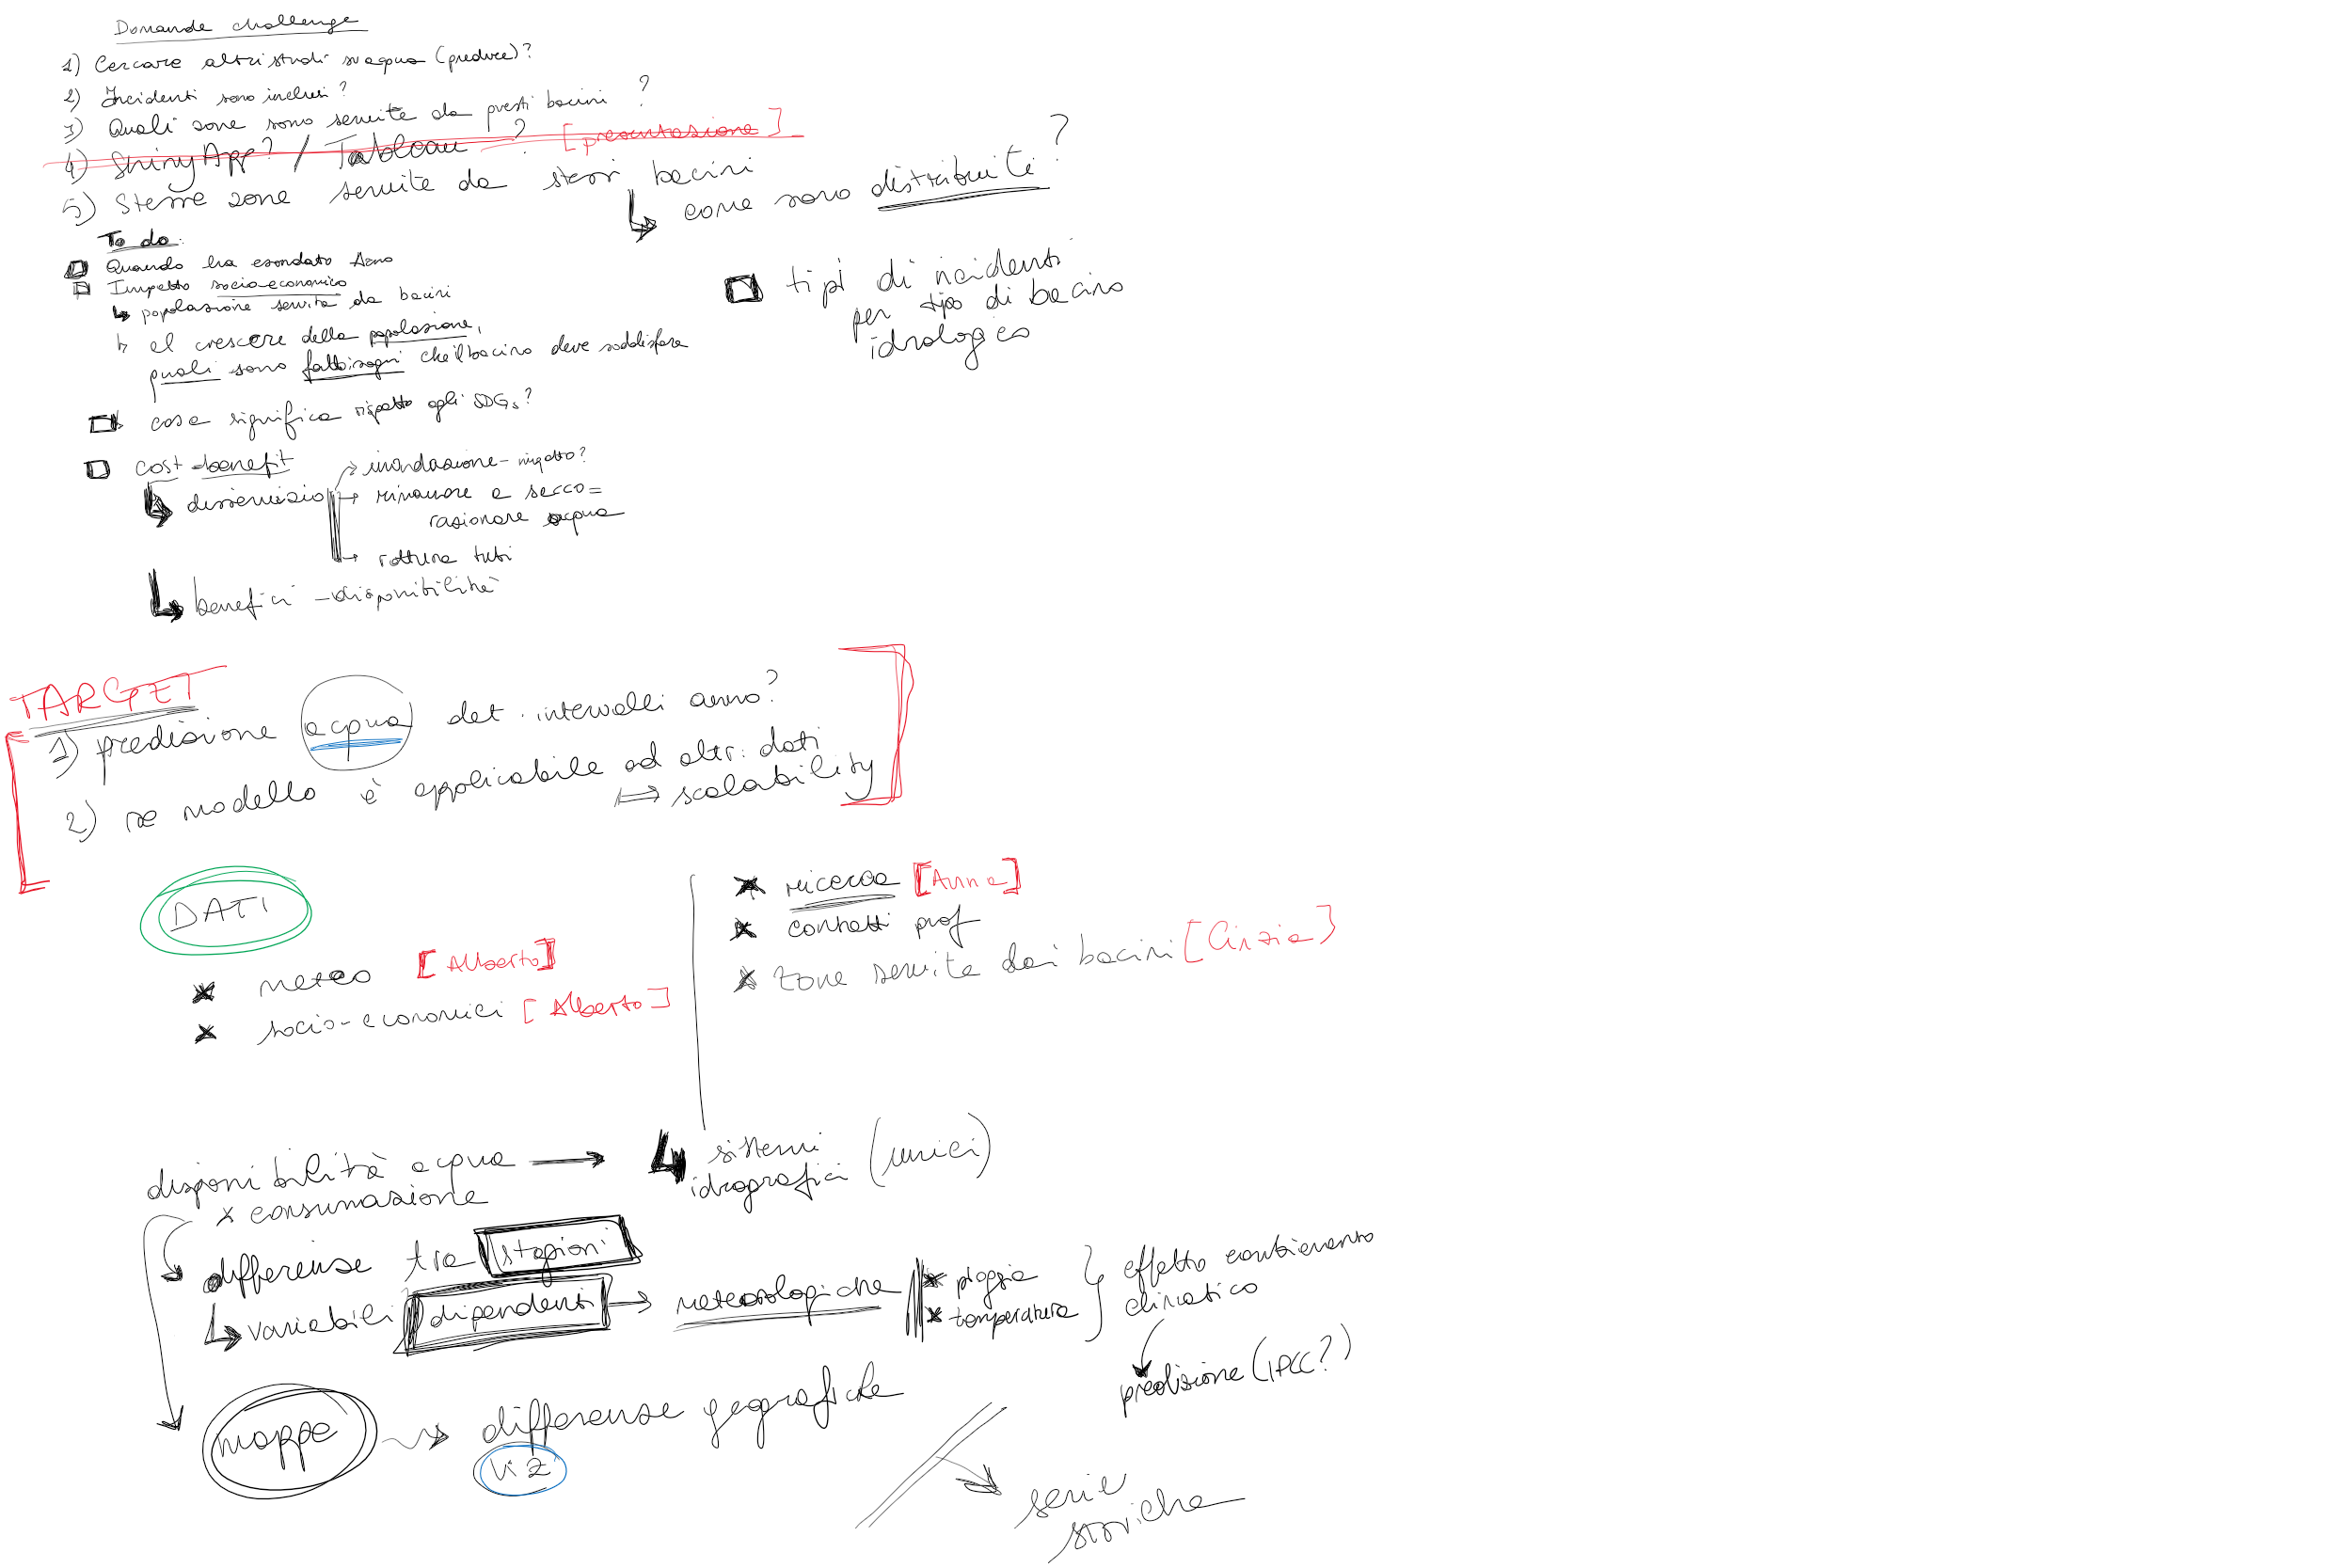 Domande challenge
1) Cercare altri studi su acqua (predire)?
2) Incidenti sono inclusi?
3) Quali zone sono servite da questi bacini?
4) ShinyApp? / Tableau? [presentazione]
5) Stesse zone servite da stessi bacini
↳ come sono distribuite?
To do:
Quando ha esondato Arno
Impatto socio-economico
↳ popolazione servita da bacini
↳ al crescere della popolazione,
quali sono fabbisogni che il bacino deve soddisfare
cosa significa rispetto agli SDGs?
cost-benefit
↳ disservizio
→ inondazione -
→ rimanere a secco =
razionare acqua
→ rottura tubi
↳ benefici - disponibilità
tipi di incidenti
per tipo di bacino
idrologico
TARGET
1) predizione acqua det. intervalli anno?
2) se modello è applicabile ad altri dati
↦ scalability
DATI
* meteo [Alberto]
* socio-economici [Alberto]
* ricerca [Anna]
* contatti prof
* zone servite dai bacini [Cinzia]
disponibilità acqua →
x consumazione
↳ sistemi
idrografici (unici)
differenze tra stagioni
↳ variabili dipendenti → meteorologiche
* pioggia
* temperatura
effetto cambiamento
climatico
predizione (IPCC?)
mappe → differenze geografiche
viz
serie
storiche